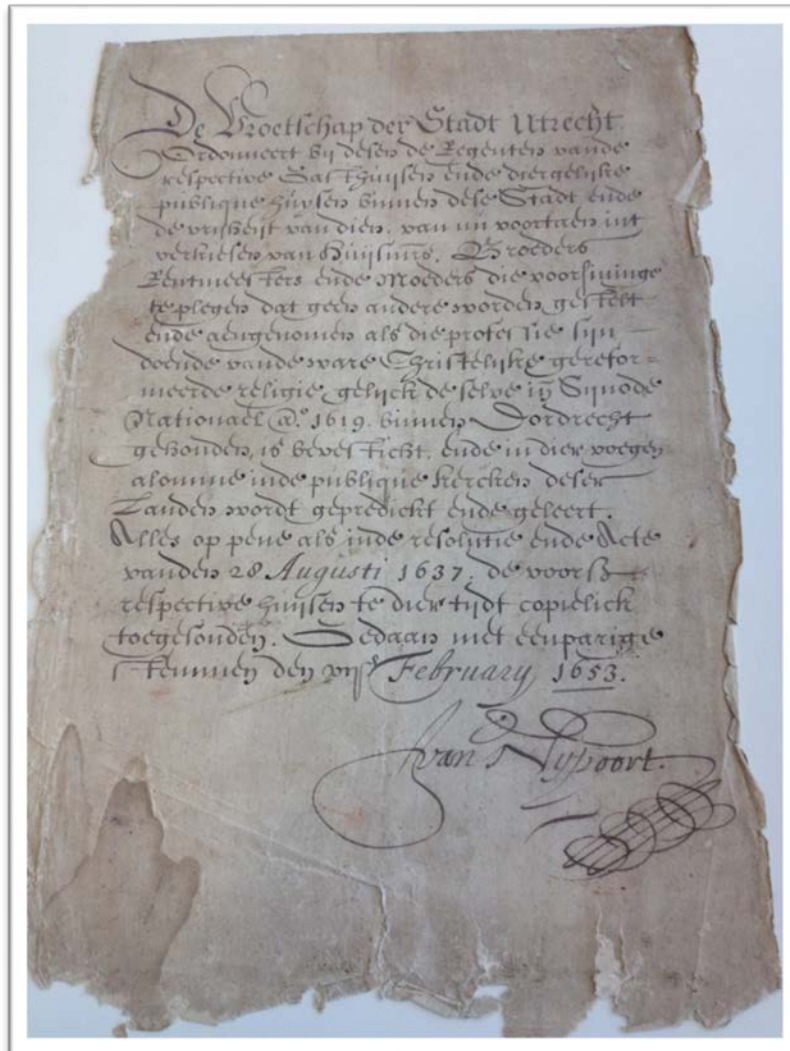 De Vroetschap der Stadt Utrecht
Ordonneert bij desen de Regenten vande
respective Gasthuijsen ende diergelijke
publique huijsen binnen dese Stadt ende
de vrijheijt van dien, van nu voortaen int
verkiesen van Huijsmrs. Broeders
Rentmeesters ende Moeders die voorsieninge
te plegen dat geen andere worden gestelt
ende aengenomen als die professie sijn
doende vande ware Christelijke gerefor=
meerde religie, gelijck de selve in Sijnode
Nationael Ao. 1619. binnen Dordrecht
gehouden, is bevesticht, ende in dier voegen
alomme inde publique kercken deser
Landen wordt gepredickt ende geleert.
Alles op pene als inde resolutie ende Acte
vanden 28 Augusti 1637. de voorsz
respective huijsen te dier tijdt copielick
toegesonden. Gedaan met eenparige
stemmen den February 1653.
van Nijpoort.